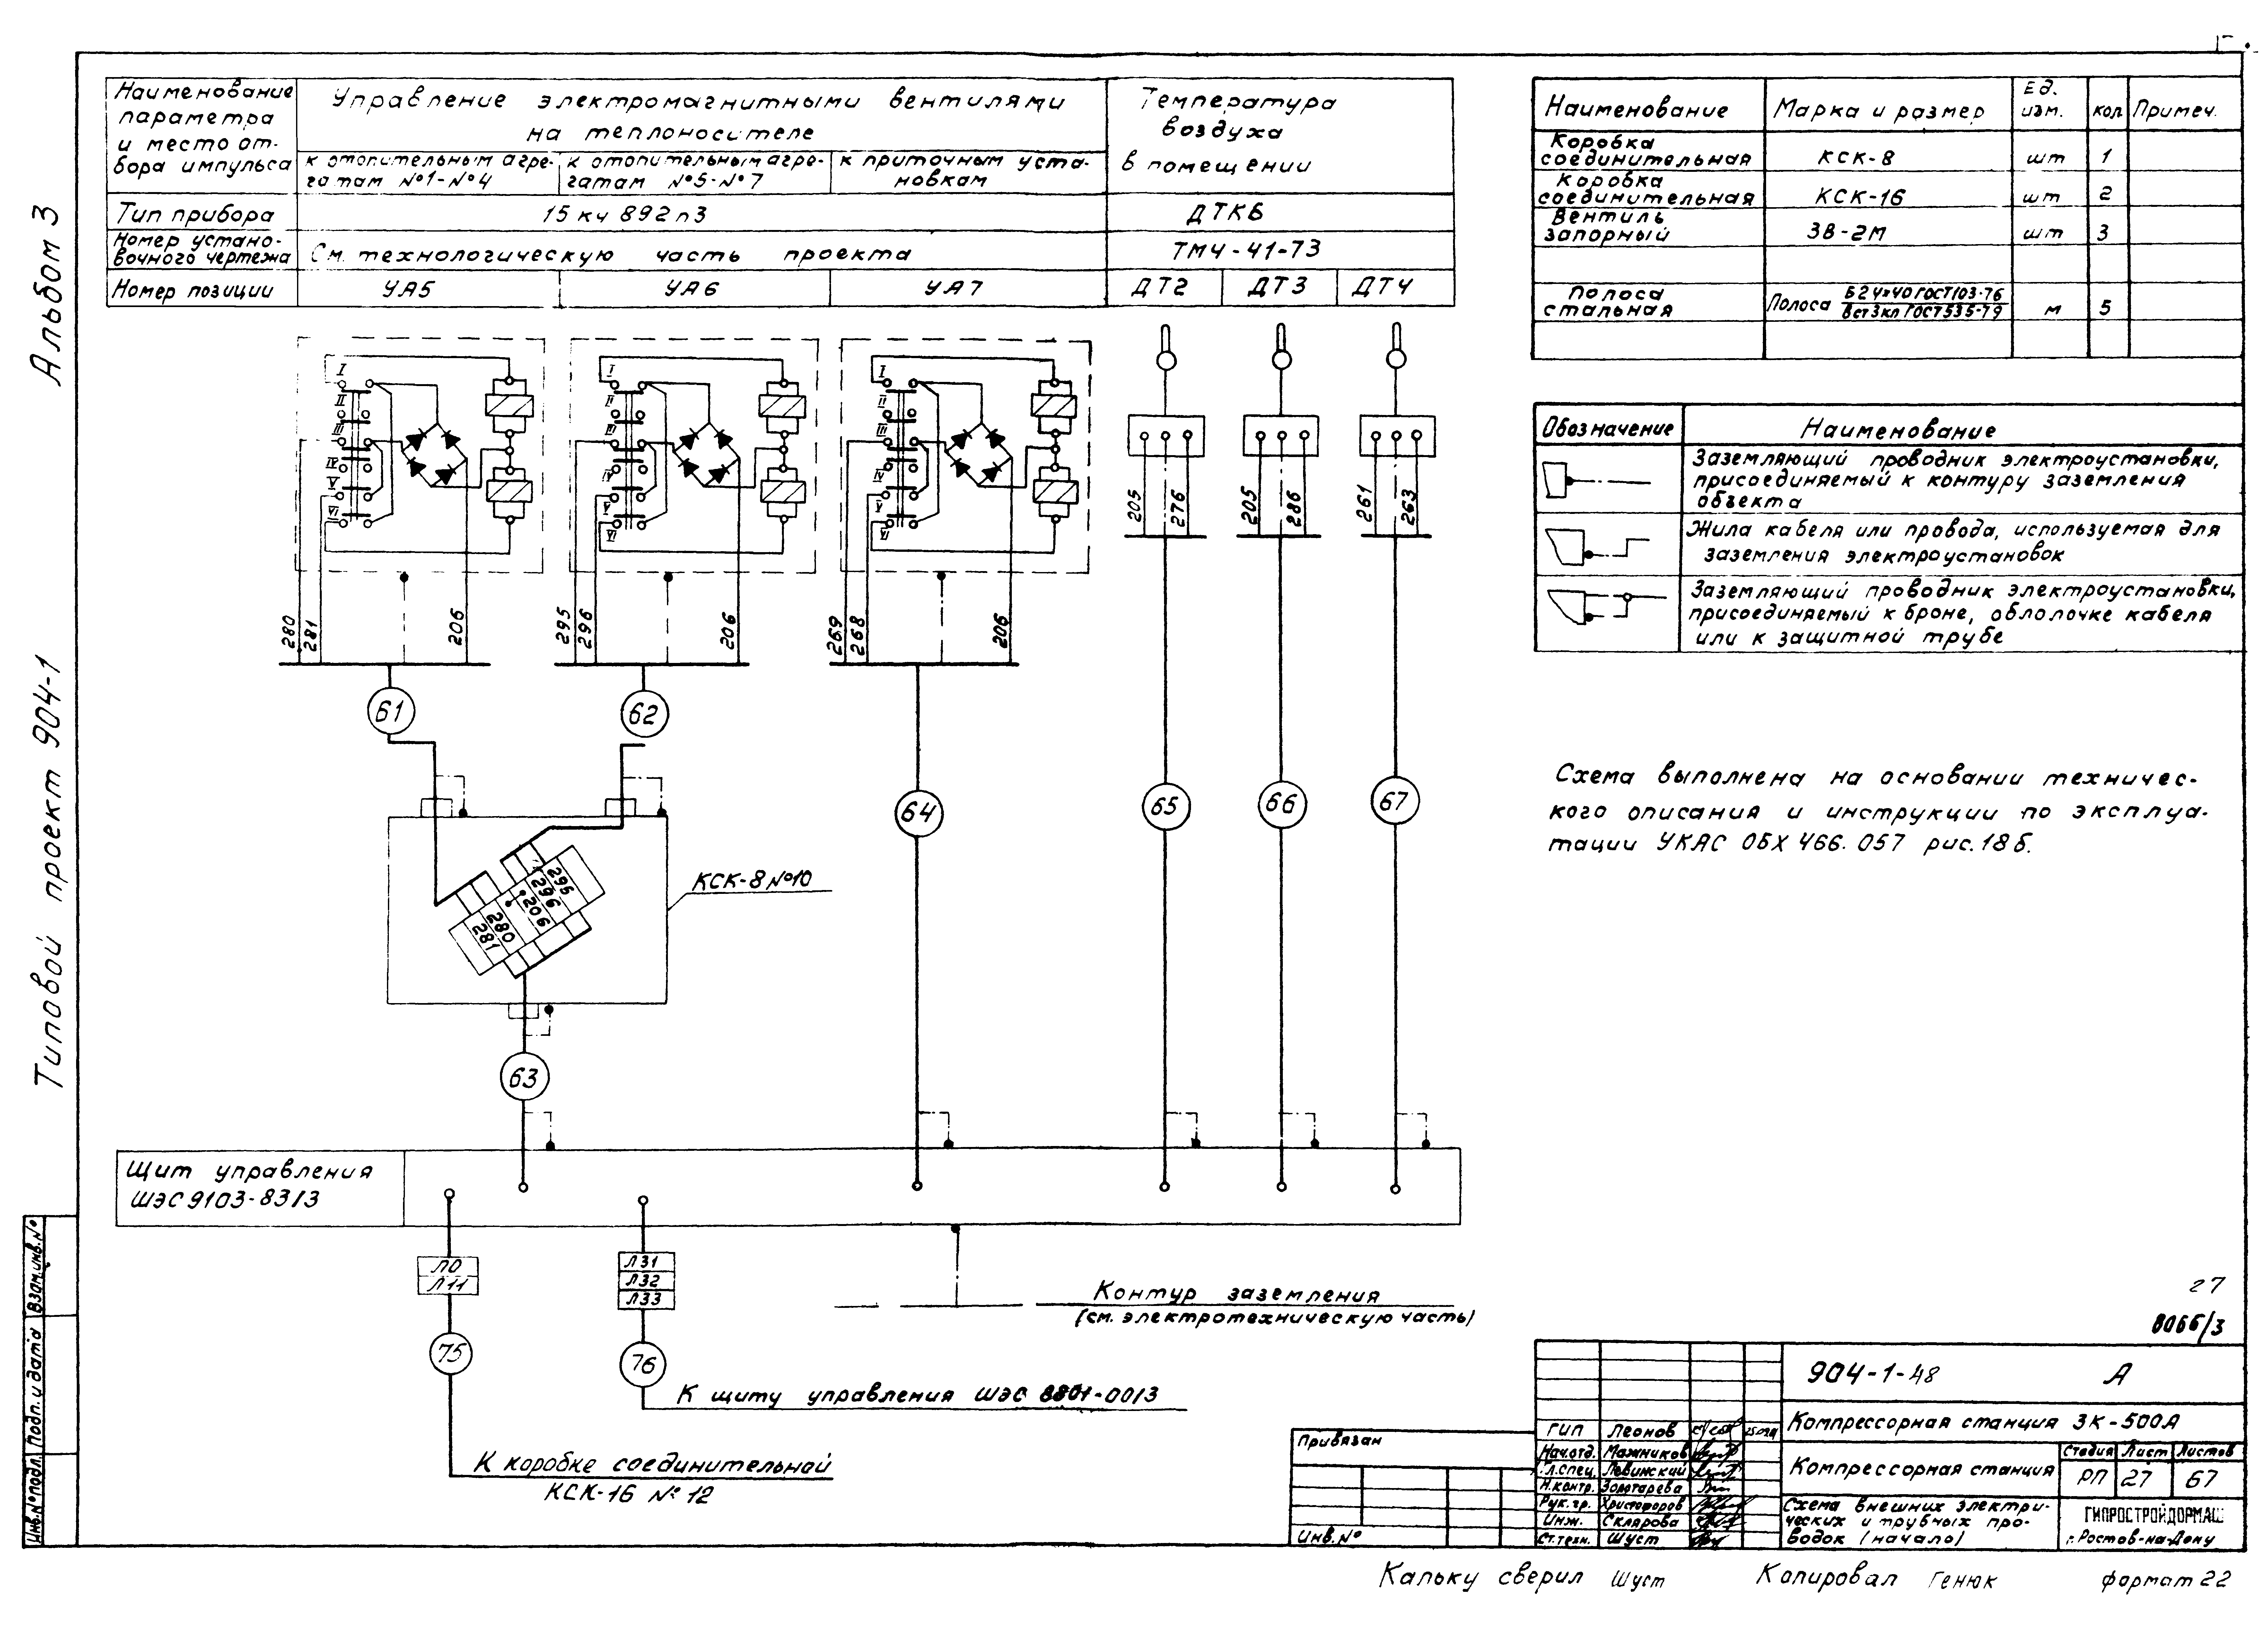 Альбом 3
Типовой проект 904-1
Наименование параметра и место от-бора импульса
Управление электромагнитными вентилями
на теплоносителе
к отопительным агре-
гатам №1-№4
к отопительным агре-
гатам №5-№7
к приточным уста-
новкам
Температура
воздуха
в помещении
Тип прибора
15 кч 892 п3
ДТКБ
Номер устано-
вочного чертежа
См. технологическую часть проекта
ТМЧ-41-73
Номер позиции
УА5
УА6
УА7
ДТ2
ДТ3
ДТ4
I
II
III
IV
V
VI
I
II
III
IV
V
VI
I
II
III
IV
V
VI
280
281
206
295
296
206
269
268
206
205
276
205
286
261
263
61
62
63
64
65
66
67
281
280
206
296
295
КСК-8 №10
Щит управления
ШЭС 9103-83/3
Л0
Л11
Л31
Л32
Л33
75
76
Контур заземления
(см. электротехническую часть)
К щиту управления ШЭС 8801-0013
К коробке соединительной
КСК-16 №12
Наименование
Марка и размер
Ед.
изм.
кол
Примеч.
Коробка
соединительная
КСК-8
шт
1
Коробка
соединительная
КСК-16
шт
2
Вентиль
запорный
ЗВ-2М
шт
3
Полоса
стальная
Полоса Б2 4×40 ГОСТ103-76
Вст3кп ГОСТ535-79
м
5
Обозначение
Наименование
Заземляющий проводник электроустановки,
присоединяемый к контуру заземления
объекта
Жила кабеля или провода, используемая для
заземления электроустановок
Заземляющий проводник электроустановки,
присоединяемый к броне, облолочке кабеля
или к защитной трубе
Схема выполнена на основании техничес-
кого описания и инструкции по эксплуа-
тации УКАС ОБХ 466. 057 рис. 18 б.
27
8066/3
904-1-48 А
Компрессорная станция 3К-500А
Компрессорная станция
Стадия
Лист
Листов
РП
27
67
Схема внешних электри-
ческих и трубных про-
водок (начало)
ГИПРОСТРОЙДОРМАШ
г. Ростов-на-Дону
ГИП Леонов
Нач.отд. Мажников
Гл.спец. Левинский
Н.контр. Золотарева
Рук.гр. Христофоров
Инж. Склярова
Ст.техн. Шуст
Привязан
Инв.№
Инв.№подл. Подп. и дата Взам.инв.№
Кальку сверил Шуст
Копировал Генюк
формат 22